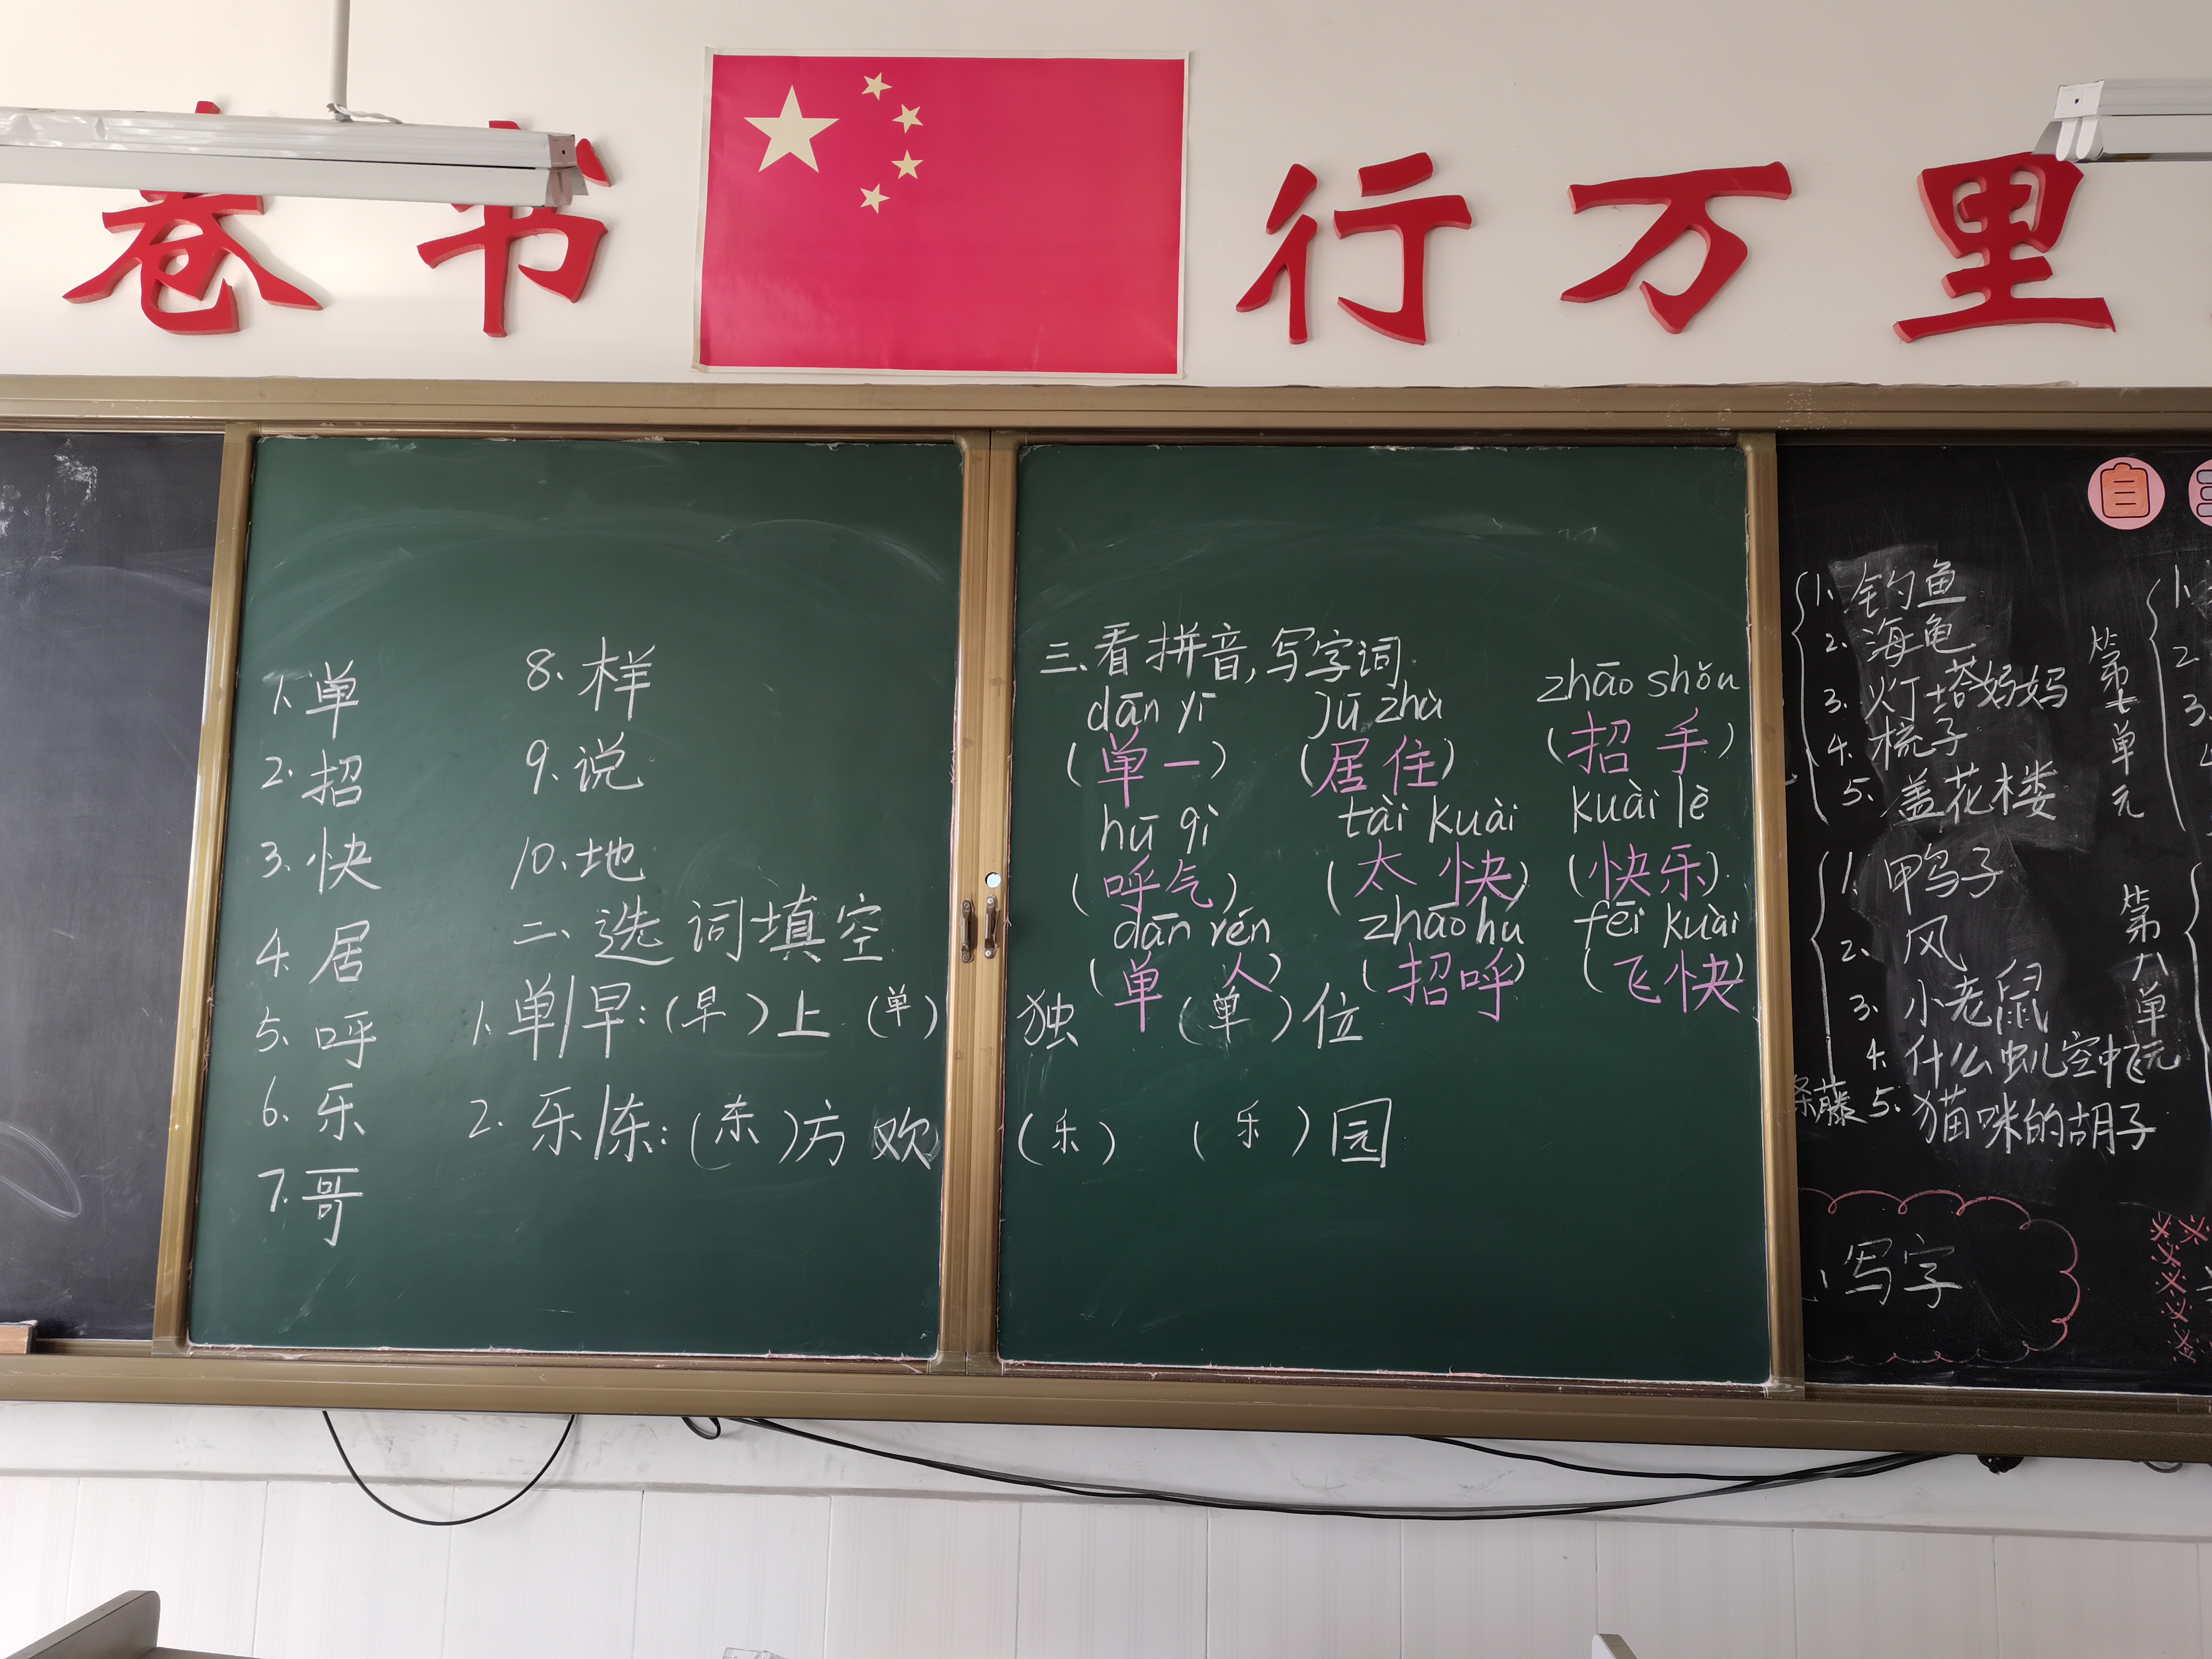 卷书 行万里
1. 单
2. 招
3. 快
4. 居
5. 呼
6. 乐
7. 哥
8. 样
9. 说
10. 地
二、选词填空
1. 单/早:(早)上 (单)独 (单)位
2. 乐/东:(东)方 欢(乐) (乐)园
三、看拼音,写字词.
dān yī jū zhù zhāo shǒu
(单一) (居住) (招手)
hū qì tài kuài kuài lè
(呼气) (太快) (快乐)
dān rén zhāo hu fēi kuài
(单人) (招呼) (飞快)
自
1. 钓鱼
2. 海龟
3. 灯塔妈妈
4. 梳子
5. 盖花楼
第七单元
1. 甲鸟子
2. 风
3. 小老鼠
4. 什么虫儿空中飞
5. 猫咪的胡子
第八单元
藤
写字
1.
2.
3.